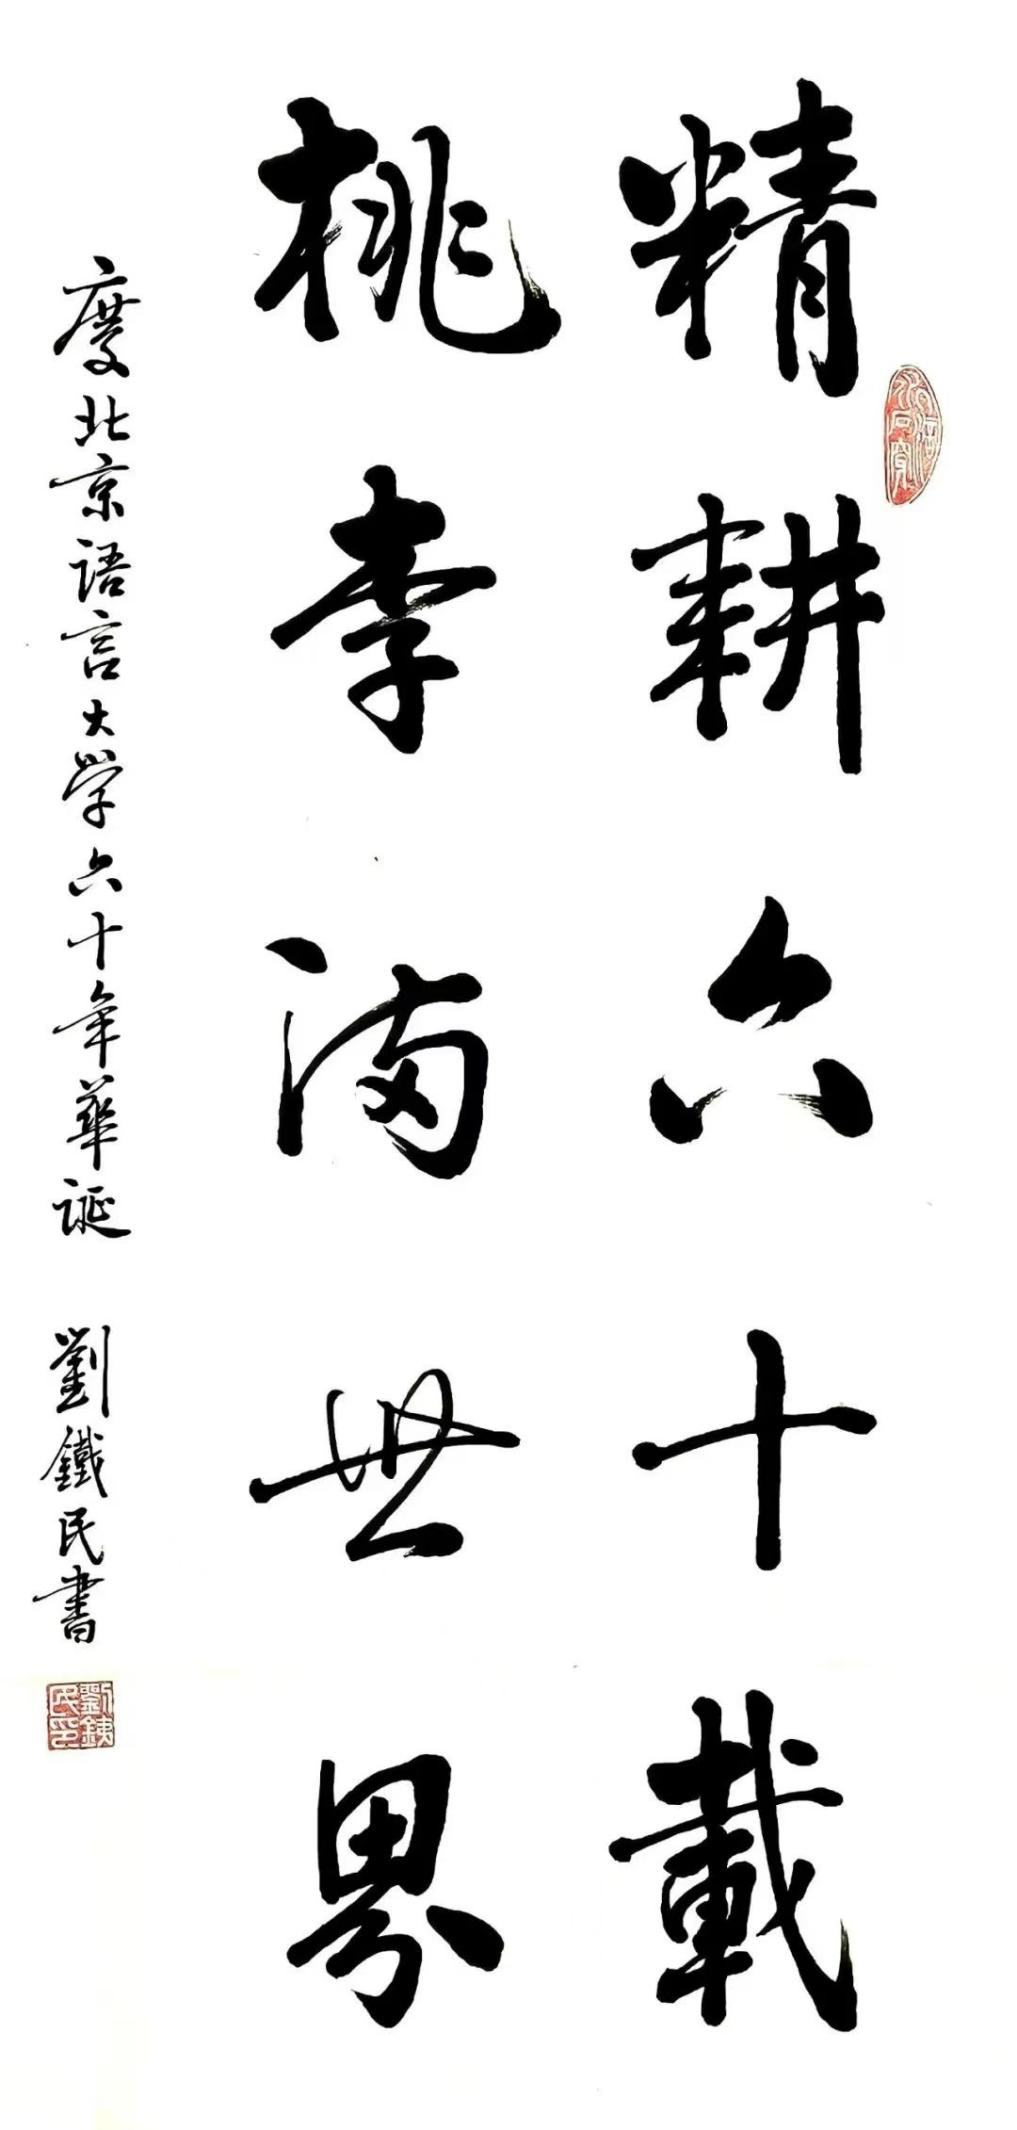 精耕六十載
桃李满世界
慶北京语言大学六十年華诞
劉鐵民書
劉鉄民印